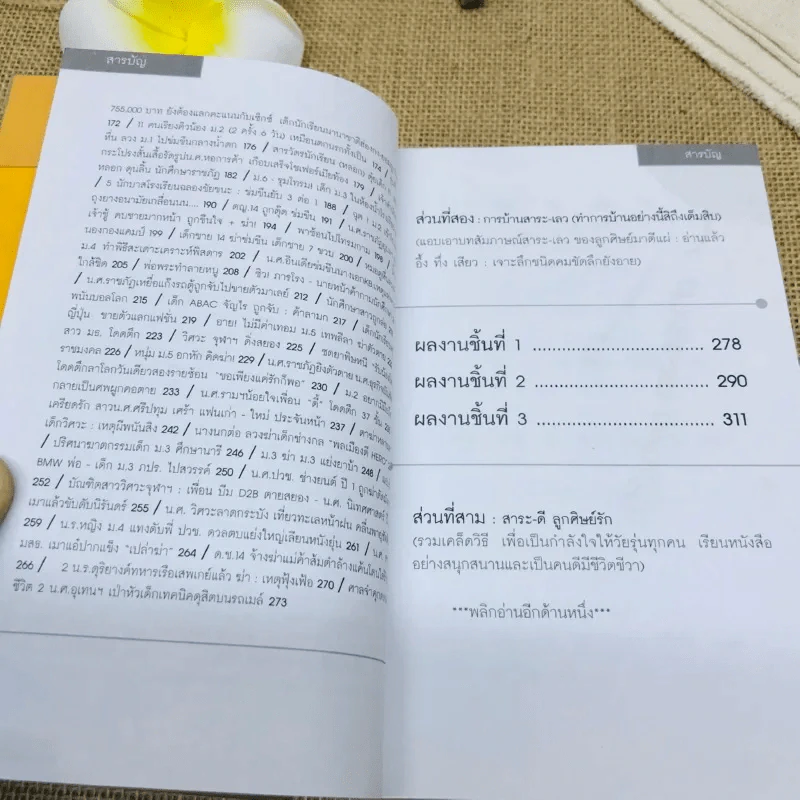 สารบัญ
755,000 บาท ยังต้องแลกคะแนนกับเซ็กซ์ เด็กนักเรียนนานาชาติสอง
172 / 11 คนเรียงคิวน้อง ม.2 (2 ครั้ง 6 วัน) เหมือนตกนรกทั้งเป็น 174 /
หื่น ลวง ม.1 ไปข่มขืนกลางน้ำตก 176 / สารวัตรนักเรียน (หลอก)
กระโปรงสั้นเสื้อรัดรูปน.ศ.หอการค้า เกือบเสร็จโชเฟอร์เมียท้อง 179 /
หลอก ตุนลิ้น นักศึกษาราชภัฏ 182 / ม.6 - ชุมโทรม! เด็ก ม.3 ในห้องน้ำ
/ 5 นักบาสโรงเรียนฉลองชัยชนะ : ข่มขืนยับ 3 ต่อ 1 188 /
ถุงยางอนามัยเกลื่อนนน.... 190 / ดญ.14 ถูกตุ๊ด ข่มขืน 191 /
เจ้าชู้ คบชายมากหน้า ถูกขืนใจ + ฆ่า! 194 / พาช้อนไปโทรมกาม 198
นองกองแคมป์ 199 / เด็กชาย 14 ฆ่าข่มขืน เด็กชาย 7 ขวบ 200 /
ม.4 ทำพิธีสะเดาะเคราะห์พิสดาร 202 / น.ศ.อินเดียข่มขืน
ใกล้ชิด 205 / พ่อพระทำลายหนู 208 / ชิว! ภารโรง - นายหน้าค้ากาม
/ น.ศ.ราชภัฏเหยื่อแก๊งรถตู้ถูกจับไปขายตัวมาเลย์ 212 / นักศึกษาสาว
พนันบอลโลก 215 / เด็ก ABAC จัญไร ถูกจับ : ค้าลามก 217 /
ญี่ปุ่น ขายตัวแลกแฟชั่น 219 / อาย! ไม่มีค่าเทอม ม.5 เทพลีลา ฆ่าตัวตาย
สาว มธ. โดดตึก 223 / วิศวะ จุฬาฯ ดิ่งสยอง 225 / ชดยาพิษหนี
ราชมงคล 226 / หนุ่ม ม.5 อกหัก คิดฆ่า! 229 / น.ศ.ราชภัฏยิงตัวตาย
โดดตึกลาโลกวันเดียวสองรายซ้อน "ขอเพียงแค่รักก็พอ" 230 / ม.2
กลายเป็นศพผูกคอตาย 233 / น.ศ.รามฯน้อยใจเพื่อน "ดี้" โดดตึก 37 ชั้น
เครียดรัก สาวน.ศ.ศรีปทุม เศร้า แฟนเก่า - ใหม่ ประจันหน้า 237 /
เด็กวิศวะ : เหตุผีพนันสิง 242 / นางนกต่อ ลวงฆ่าเด็กช่างกล "พลเมืองดี HERO"
/ ปริศนาฆาตกรรมเด็ก ม.3 ศึกษานารี 246 / ม.3 ฆ่า ม.3 แย่งยาบ้า 248 /
BMW พ่อ - เด็ก ม.3 ภปร. ไปสวรรค์ 250 / น.ศ.ปวช. ช่างยนต์ ปี 1
252 / บัณฑิตสาววิศวะจุฬาฯ : เพื่อน บีม D2B ตายสยอง - น.ศ. นิเทศศาสตร์
เมาแล้วขับดับนิรันดร์ 255 / น.ศ. วิศวะลาดกระบัง เที่ยวทะเลหน้าฝน
259 / น.ร.หญิง ม.4 แทงดับพี่ ปวช. ดวลตบแย่งใหญ่เลียนหนังยุ่น 261 /
มสธ. เมาแอ๋ปากแข็ง "เปล่าฆ่า" 264 / ด.ช.14 จ้างฆ่าแม่ค้าส้มตำล้างแค้น
266 / 2 น.ร.ดุริยางค์ทหารเรือเสพเกย์แล้ว ฆ่า : เหตุฟุ้งเฟ้อ 270 /
ชีวิต 2 น.ศ.อุเทนฯ เป่าหัวเด็กเทคนิคดุสิตบนรถเมล์ 273
สารบัญ
ส่วนที่สอง : การบ้านสาระ-เลว (ทำการบ้านอย่างนี้สิถึงเต็มสิบ)
(แอบเอาบทสัมภาษณ์สาระ-เลว ของลูกศิษย์มาตีแผ่ : อ่านแล้ว
อึ้ง ทึ่ง เสียว : เจาะลึกชนิดคมชัดลึกยังอาย)
ผลงานชิ้นที่ 1 ................................ 278
ผลงานชิ้นที่ 2 ................................ 290
ผลงานชิ้นที่ 3 ................................ 311
ส่วนที่สาม : สาระ-ดี ลูกศิษย์รัก
(รวมเคล็ดวิธี เพื่อเป็นกำลังใจให้วัยรุ่นทุกคน เรียนหนังสือ
อย่างสนุกสนานและเป็นคนดีมีชีวิตชีวา)
***พลิกอ่านอีกด้านหนึ่ง***